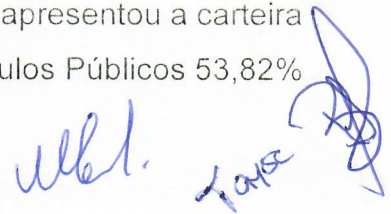 apresentou a carteira
ulos Públicos 53,82%